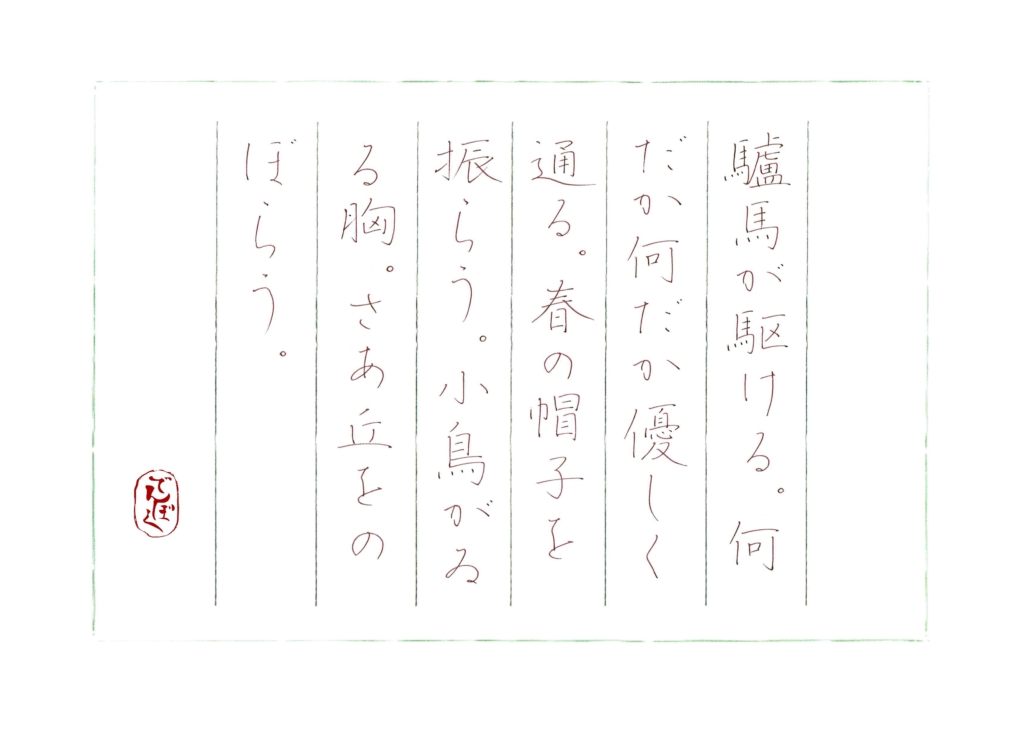 驢馬が駆ける。何
だか何だか優しく
通る。春の帽子を
振らう。小鳥がゐ
る胸。さあ丘をの
ぼらう。
でんぼく